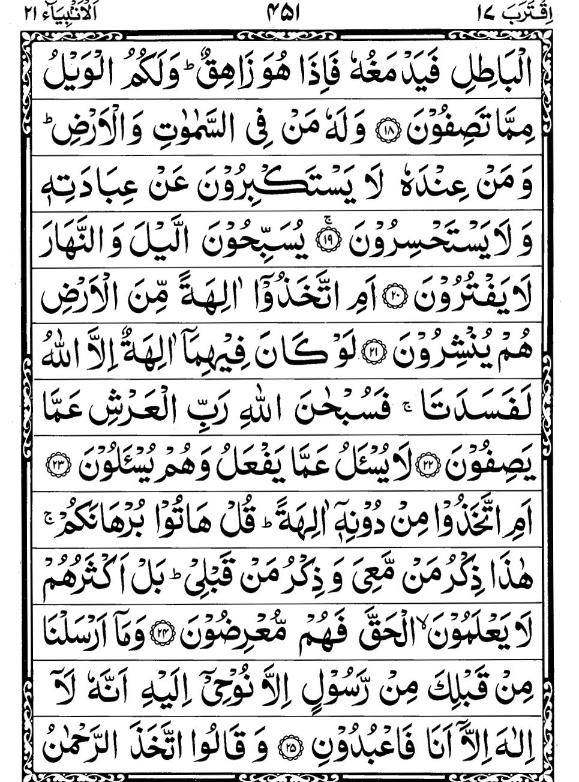 اِقْتَرَبَ ١٧ ۴۵١ اَلْاَنْۢبِیَآء ٢١
الْبَاطِلِ فَیَدْمَغُهٗ فَاِذَا هُوَ زَاهِقٌ ؕ وَلَكُمُ الْوَیْلُ
مِمَّا تَصِفُوْنَ ﴿١٨﴾ وَلَهٗ مَنْ فِی السَّمٰوٰتِ وَالْاَرْضِ ؕ
وَمَنْ عِنْدَهٗ لَا یَسْتَكْبِرُوْنَ عَنْ عِبَادَتِهٖ
وَلَا یَسْتَحْسِرُوْنَ ۚ﴿١٩﴾ یُسَبِّحُوْنَ الَّیْلَ وَالنَّهَارَ
لَا یَفْتُرُوْنَ ﴿٢٠﴾ اَمِ اتَّخَذُوْۤا اٰلِهَةً مِّنَ الْاَرْضِ
هُمْ یُنْشِرُوْنَ ﴿٢١﴾ لَوْ كَانَ فِیْهِمَاۤ اٰلِهَةٌ اِلَّا اللّٰهُ
لَفَسَدَتَا ۚ فَسُبْحٰنَ اللّٰهِ رَبِّ الْعَرْشِ عَمَّا
یَصِفُوْنَ ﴿٢٢﴾ لَا یُسْـَٔلُ عَمَّا یَفْعَلُ وَهُمْ یُسْـَٔلُوْنَ ﴿٢٣﴾
اَمِ اتَّخَذُوْا مِنْ دُوْنِهٖۤ اٰلِهَةً ؕ قُلْ هَاتُوْا بُرْهَانَكُمْ ۚ
هٰذَا ذِكْرُ مَنْ مَّعِیَ وَذِكْرُ مَنْ قَبْلِیْ ؕ بَلْ اَكْثَرُهُمْ
لَا یَعْلَمُوْنَ ۙ الْحَقَّ فَهُمْ مُّعْرِضُوْنَ ﴿٢۴﴾ وَمَاۤ اَرْسَلْنَا
مِنْ قَبْلِكَ مِنْ رَّسُوْلٍ اِلَّا نُوْحِیْۤ اِلَیْهِ اَنَّهٗ لَاۤ
اِلٰهَ اِلَّاۤ اَنَا فَاعْبُدُوْنِ ﴿٢۵﴾ وَقَالُوا اتَّخَذَ الرَّحْمٰنُ